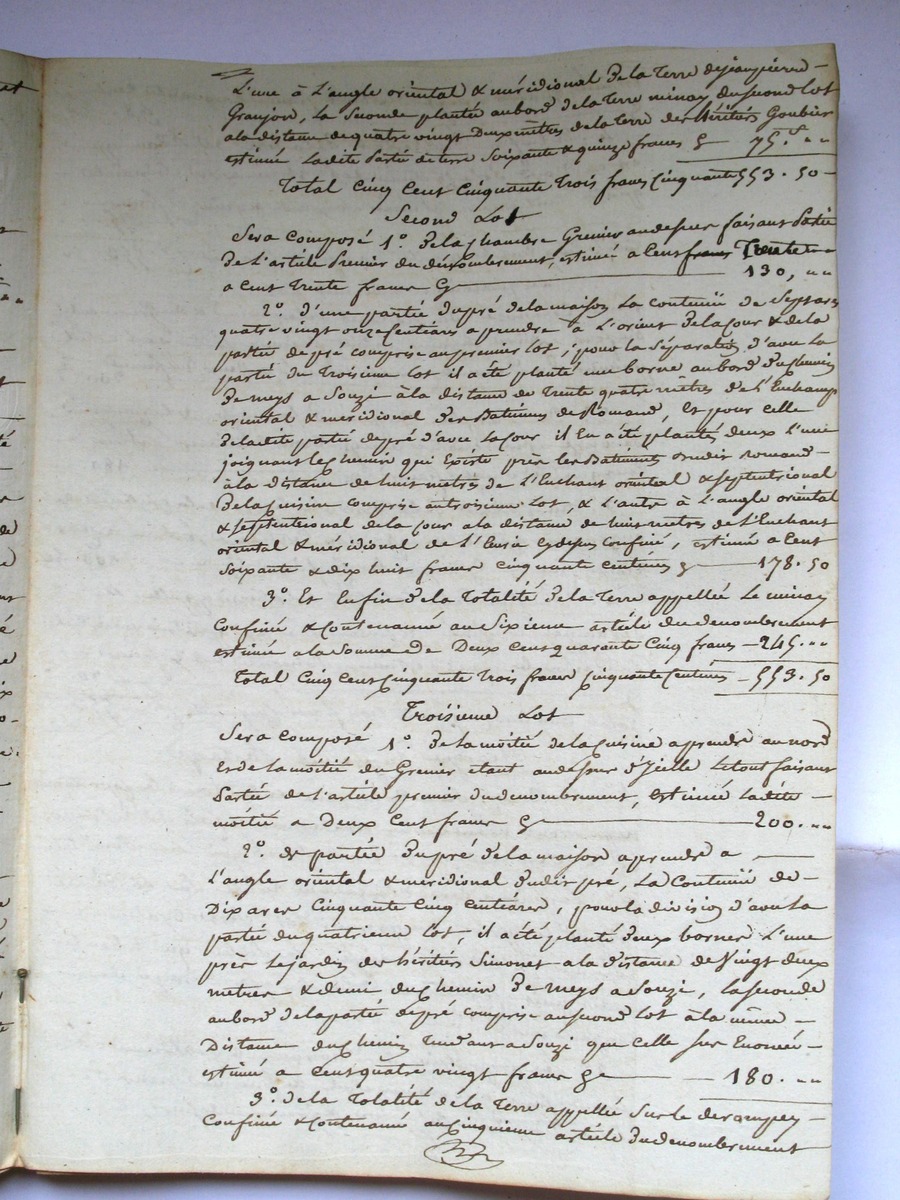 L'une à L'angle oriental & méridional de la Terre de jeanpierre
Granjon, la seconde plantée au bord de la Terre minay du second lot
a la distance de quatre vingt deux mètres de la terre des héritiers Goubier
estimée Ladite partie de terre soixante & quinze francs 75 " "
Total Cinq Cent Cinquante Trois francs Cinquante 553.50
Second Lot
Sera Composé 1°. de la Chambre Grenier au dessus faisant partie
de L'article premier du dénombrement, estimée a Cent francs Trente
a Cent Trente francs 130, " "
2°. d'une partie du pré de la maison La Contenue de Sept ares
quatre vingt onze Centiares a prendre à L'orient de la Cour & de la
partie de pré comprise au premier lot ; pour la séparation d'avec la
partie du Troisieme lot il a été planté une borne au bord du chemin
de meys a Souzi à la distance de Trente quatre mètres de l'Enchant
oriental & méridional des Batimens de Romand, Et pour celle
de ladite partie de pré d'avec la cour il En a été planté deux L'une
joignant le chemin qui Existe près les Batiments du dit romand
à la distance de huit metres de L'Enchant oriental & septentrional
de la Cuisine comprise au troisieme lot, & L'autre à L'angle oriental
& septentrional de la Cour a la distance de huit metres de L'Enchant
oriental & méridional de l'Ecurie cy dessus confinée, estimée a Cent
Soixante & dix huit francs Cinquante Centimes 178.50
3°. Et Enfin de la Totalité de la Terre appellée Le minay
Confinée & Contenance au Sixieme article du denombrement
estimée a la Somme de Deux Cent quarante Cinq francs 245. " "
Total Cinq Cent Cinquante Trois francs Cinquante Centimes 553.50
Troisieme Lot
Sera Composé 1°. de la moitié de la Cuisine a prendre au nord
et de la moitié du Grenier etant au dessus d'Icelle Le tout faisant
Partie de L'article premier du denombrement, estimée Ladite
moitié a Deux Cent francs 200. " "
2°. de partie du pré de la maison a prendre a
L'angle oriental & méridional dudit pré, La Contenue de
Dix ares Cinquante Cinq Centiares, pour la division d'avec la
partie du quatrieme lot, il a été planté deux bornes L'une
près Le jardin des héritiers Simonet a la distance de Vingt deux
metres & demi du chemin de meys a Souzi, la seconde
au bord de la partie de pré comprise au second lot à la même
Distance du chemin Tendant a Souzi que celle sus Enoncée
estimée a Cent quatre vingt francs 180. " "
3°. de la Totalité de la Terre appellée Sur le
Confinée & Contenance au Cinquieme article du denombrement